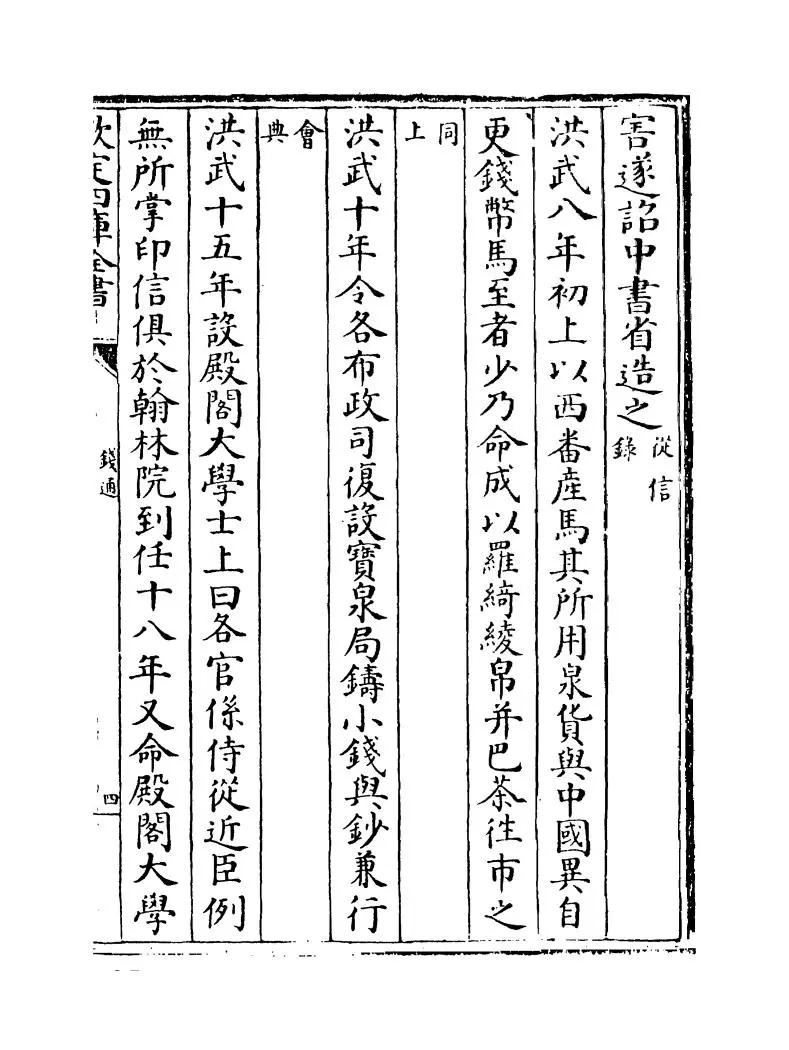 害遂詔中書省造之從信錄
洪武八年初上以西番産馬其所用泉貨與中國異自
更錢幣馬至者少乃命成以羅綺綾帛并巴茶徃市之
同上
洪武十年令各布政司復設寶泉局鑄小錢與鈔兼行
會典
洪武十五年設殿閣大學士上曰各官係侍從近臣例
無所掌印信俱於翰林院到任十八年又命殿閣大學
欽定四庫全書
錢通
四